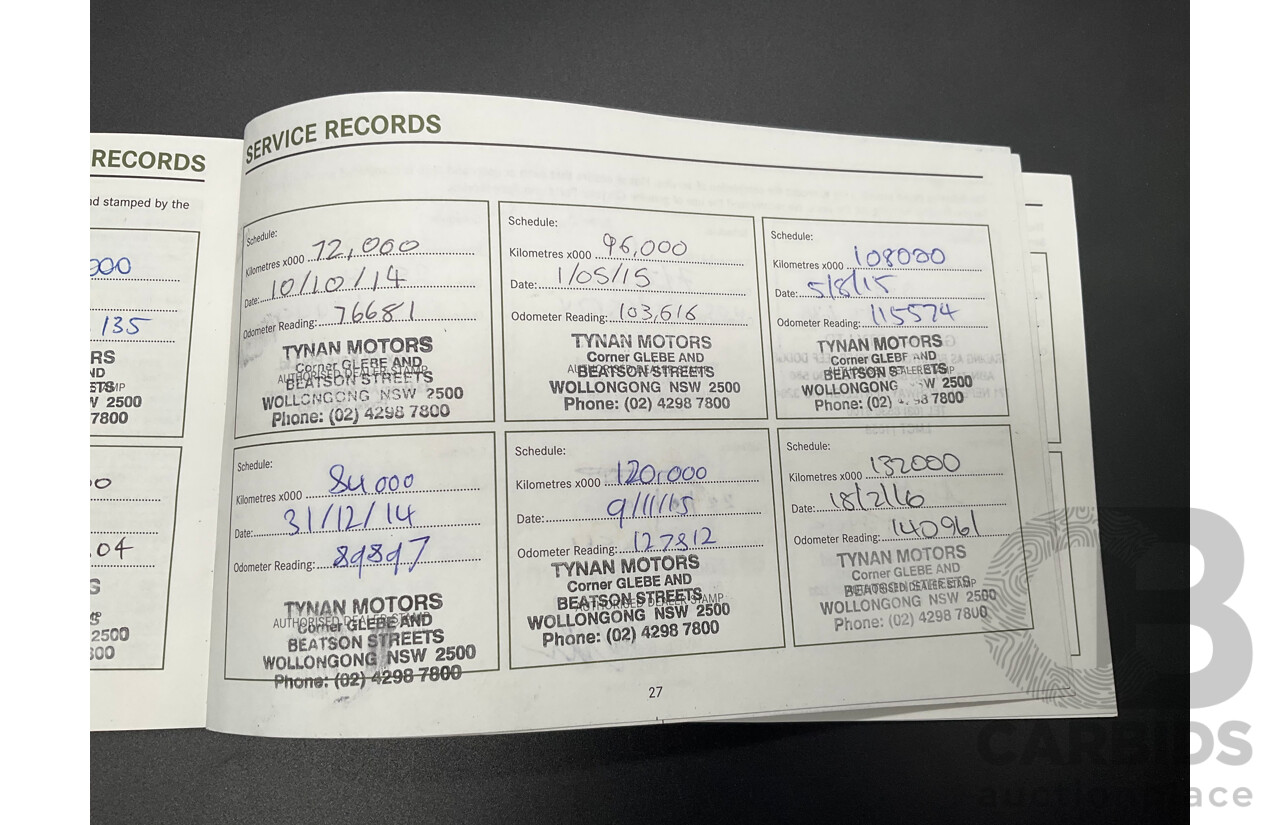 RECORDS
nd stamped by the
000
135
RS
ND
ETS MP
W 2500
7800
0
.04
S
2500
300
SERVICE RECORDS
Schedule:
Kilometres x000 72,000
Date: 10/10/14
Odometer Reading: 76681
TYNAN MOTORS
Corner GLEBE AND
AUTHORISED DEALER STAMP
BEATSON STREETS
WOLLONGONG NSW 2500
Phone: (02) 4298 7800
Schedule:
Kilometres x000 96,000
Date: 1/05/15
Odometer Reading: 103,616
TYNAN MOTORS
Corner GLEBE AND
AUTHORISED DEALER STAMP
BEATSON STREETS
WOLLONGONG NSW 2500
Phone: (02) 4298 7800
Schedule:
Kilometres x000 108000
Date: 5/8/15
Odometer Reading: 115574
TYNAN MOTORS
Corner GLEBE AND
AUTHORISED DEALER STAMP
BEATSON STREETS
WOLLONGONG NSW 2500
Phone: (02) 4298 7800
Schedule:
Kilometres x000 84000
Date: 31/12/14
Odometer Reading: 89897
TYNAN MOTORS
AUTHORISED DEALER STAMP
Corner GLEBE AND
BEATSON STREETS
WOLLONGONG NSW 2500
Phone: (02) 4298 7800
Schedule:
Kilometres x000 120,000
Date: 9/11/15
Odometer Reading: 127812
TYNAN MOTORS
Corner GLEBE AND
BEATSON STREETS
AUTHORISED DEALER STAMP
WOLLONGONG NSW 2500
Phone: (02) 4298 7800
Schedule:
Kilometres x000 132000
Date: 18/2/16
Odometer Reading: 140961
TYNAN MOTORS
Corner GLEBE AND
BEATSON STREETS
AUTHORISED DEALER STAMP
WOLLONGONG NSW 2500
Phone: (02) 4298 7800
27
CB
CARBIDS
auctionplace